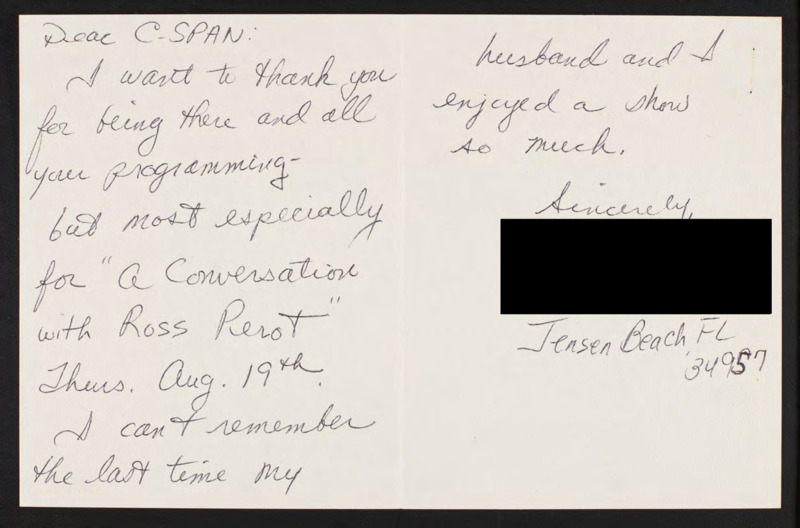 Dear C-SPAN:
I want to thank you
for being there and all
your programming-
but most especially
for "A Conversation
with Ross Perot"
Thurs. Aug. 19th.
I can't remember
the last time my
husband and I
enjoyed a show
so much.
Sincerely,
Jensen Beach, FL
34957